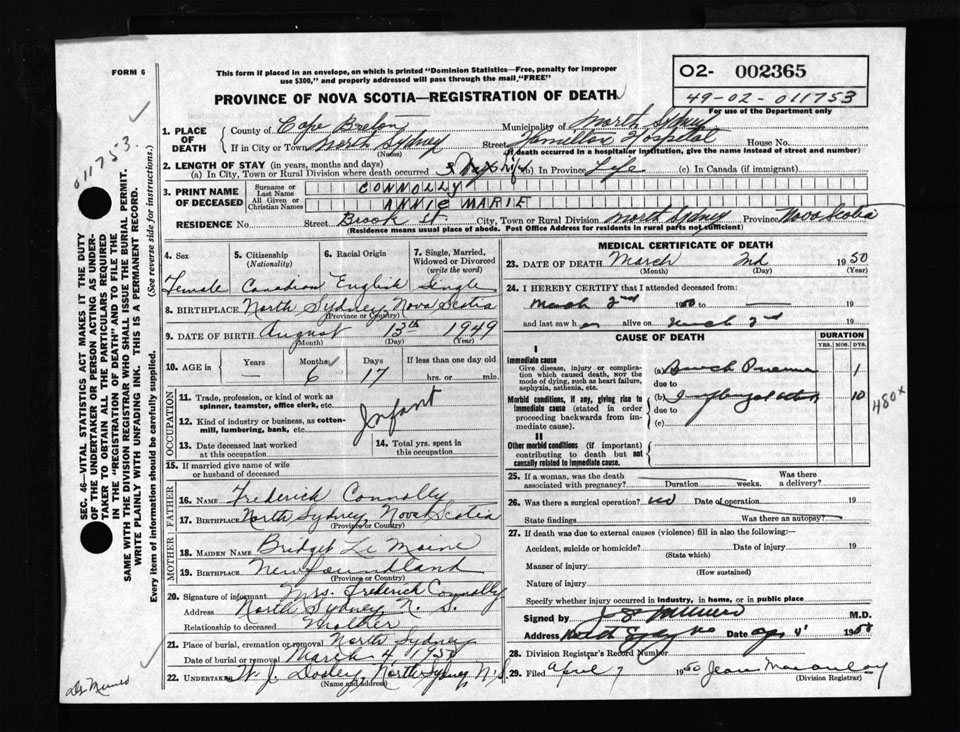 FORM 6
This form if placed in an envelope, on which is printed "Dominion Statistics—Free, penalty for improper
use $300," and properly addressed will pass through the mail, "FREE"
O2- 002365
49-02-011753
For use of the Department only
PROVINCE OF NOVA SCOTIA—REGISTRATION OF DEATH
011753.
SEC. 46—VITAL STATISTICS ACT MAKES IT THE DUTY
OF THE UNDERTAKER OR PERSON ACTING AS UNDER-
TAKER TO OBTAIN ALL THE PARTICULARS REQUIRED
IN THE "REGISTRATION OF DEATH" AND TO FILE THE
SAME WITH THE DIVISION REGISTRAR WHO SHALL ISSUE THE BURIAL PERMIT.
WRITE PLAINLY WITH UNFADING INK. THIS IS A PERMANENT RECORD.
Every item of information should be carefully supplied. (See reverse side for instructions.)
1. PLACE OF DEATH
County of Cape Breton Municipality of North Sydney
If in City or Town North Sydney Street Hamilton Hospital House No.
(Name) (If death occurred in a hospital or institution, give the name instead of street and number)
2. LENGTH OF STAY (in years, months and days)
(a) In City, Town or Rural Division where death occurred (b) In Province Life (c) In Canada (if immigrant)
3. PRINT NAME OF DECEASED
Surname or Last Name CONNOLLY
All Given or Christian Names ANNIE MARIE
RESIDENCE No. Street Brook St. City, Town or Rural Division North Sydney Province Nova Scotia
(Residence means usual place of abode. Post Office Address for residents in rural parts not sufficient)
4. Sex 5. Citizenship (Nationality) 6. Racial Origin 7. Single, Married, Widowed or Divorced (write the word)
Female Canadian English Single
8. BIRTHPLACE North Sydney, Nova Scotia
(Province or Country)
9. DATE OF BIRTH August 13th 1949
(Month) (Day) (Year)
10. AGE in Years Months Days If less than one day old
— 6 17 hrs. or min.
OCCUPATION
11. Trade, profession, or kind of work as
spinner, teamster, office clerk, etc.
12. Kind of industry or business, as cotton-
mill, lumbering, bank, etc.
Infant
13. Date deceased last worked
at this occupation
14. Total yrs. spent in
this occupation
15. If married give name of wife
or husband of deceased
FATHER
16. NAME Frederick Connolly
17. BIRTHPLACE North Sydney, Nova Scotia
(Province or Country)
MOTHER
18. MAIDEN NAME Bridget Le Moine
19. BIRTHPLACE Newfoundland
(Province or Country)
20. Signature of informant Mrs. Frederick Connolly
Address North Sydney, N. S.
Relationship to deceased Mother
21. Place of burial, cremation or removal North Sydney
Date of burial or removal March 4, 1950
22. UNDERTAKER W. J. Dooley, North Sydney, N.S.
(Name and Address)
Dr. Munro
MEDICAL CERTIFICATE OF DEATH
23. DATE OF DEATH March 2nd 1950
(Month) (Day) (Year)
24. I HEREBY CERTIFY that I attended deceased from:
March 2nd 1950 to — 19
and last saw her alive on March 2nd 19
CAUSE OF DEATH DURATION
YRS. MOS. DYS.
I
Immediate cause
Give disease, injury or complica-
tion which caused death, not the
mode of dying, such as heart failure,
asphyxia, asthenia, etc.
(a) 1
due to
Morbid conditions, if any, giving rise to
immediate cause (stated in order
proceeding backwards from im-
mediate cause).
(b) 10
due to
(c)
480x
II
Other morbid conditions (if important)
contributing to death but not
causally related to immediate cause.
25. If a woman, was the death
associated with pregnancy? Duration weeks. Was there
a delivery?
26. Was there a surgical operation? no Date of operation 19
State findings Was there an autopsy?
27. If death was due to external causes (violence) fill in also the following:
Accident, suicide or homicide? Date of injury 19
(State which)
Manner of injury
(How sustained)
Nature of injury
Specify whether injury occurred in industry, in home, or in public place
Signed by M.D.
Address Date 1950
28. Division Registrar's Record Number
29. Filed April 7 1950 Jean Macaulay
(Division Registrar)